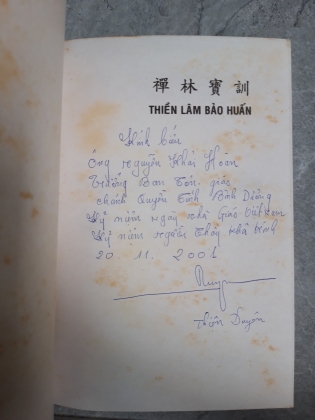 禪林寶訓
THIỀN LÂM BẢO HUẤN
Kính biếu
Ông Nguyễn Khải Hoàn
Trưởng Ban Tôn giáo
chánh quyền tỉnh Bình Dương
Kỷ niệm ngày nhà Giáo Việt Nam
Kỷ niệm người thầy khả kính
20. 11. 2001
Thiện Duyên